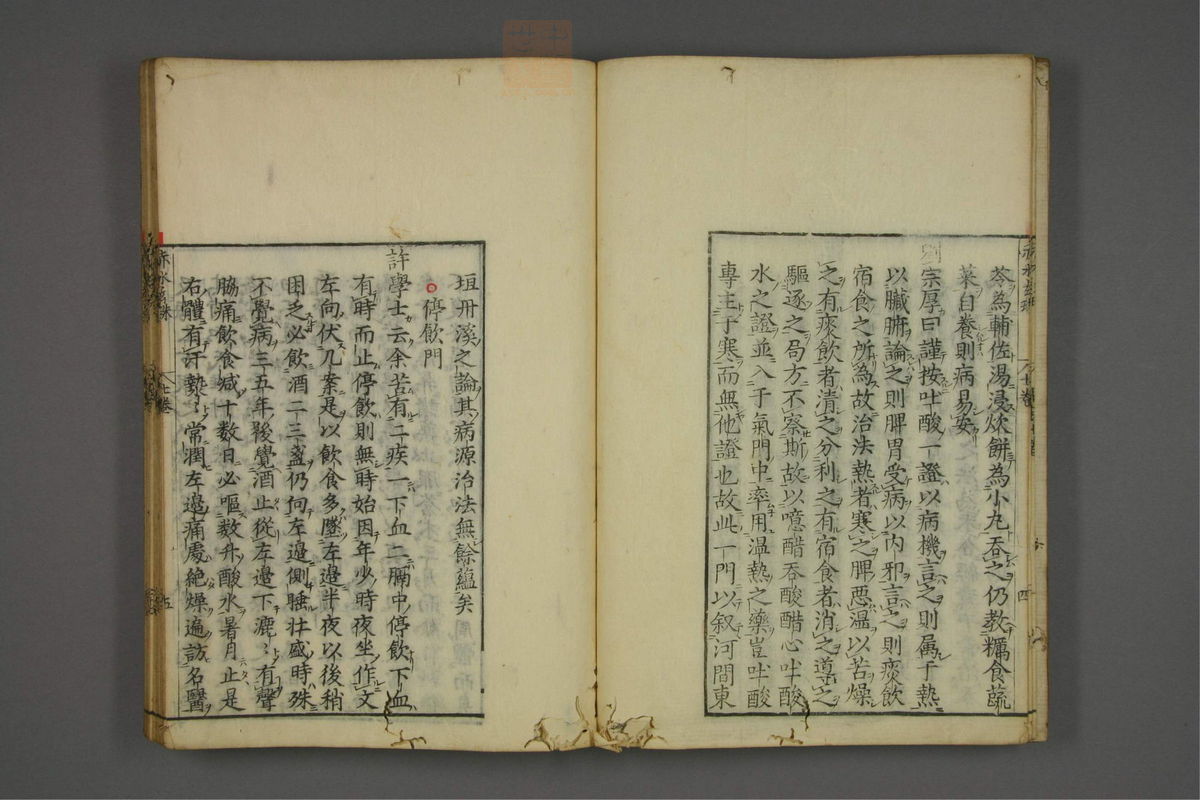 苓為輔佐湯浸炊餅為小丸吞之仍教糲食蔬
菜自養則病易安
劉宗厚曰謹按吐酸一證以病機言之則属于熱
以臟腑論之則脾胃受病以内邪言之則痰飲
宿食之所為故治法熱者寒之脾惡温以苦燥
之有痰飲者清之分利之有宿食者消之導之
驅逐之局方不察斯故以噫醋吞酸醋心吐酸
水之證並入于氣門中率用温熱之藥豈吐酸
專主于寒而無他證也故此一門以叙河間東
垣丹溪之論其病源治法無餘蘊矣
停飲門
許學士云余苦有二疾一下血二膈中停飲下血
有時而止停飲則無時始因年少時夜坐作文
左向伏几案是以飲食多墜左邊半夜以後稍
困乏必飲酒二三盞仍向左邊側睡壮盛時殊
不覺病三五年後覺酒止從左邊下漉〻有聲
脇痛飲食减十数日必嘔数升酸水暑月止是
右體有汗漐〻常潤左邊痛處絶燥遍訪名醫